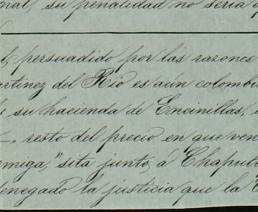 nal, su penalidad no sería
persuadido por las razones
artinez del Rio es aún colomb
su hacienda de Encinillas,
resto del precio en que ven
emiga," sita junto á Chapul
enegado la justicia que la